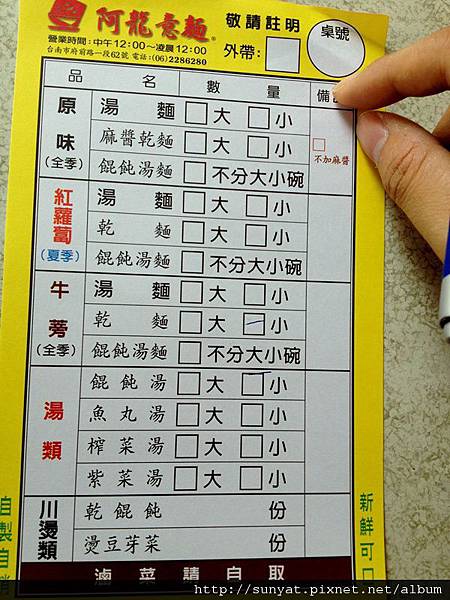 阿龍意麵®
敬請註明
營業時間:中午12:00～凌晨12:00
外帶:□
桌號
台南市府前路一段62號 電話:(06)2286280
品 名 數 量
原味(全季)
湯 麵 □大 □小
麻醬乾麵 □大 □小
□不加麻醬
餛飩湯麵 □不分大小碗
紅蘿蔔(夏季)
湯 麵 □大 □小
乾 麵 □大 □小
餛飩湯麵 □不分大小碗
牛蒡(全季)
湯 麵 □大 □小
乾 麵 □大 □小
餛飩湯麵 □不分大小碗
湯類
餛飩湯 □大 □小
魚丸湯 □大 □小
榨菜湯 □大 □小
紫菜湯 □大 □小
川燙類
乾餛飩 份
燙豆芽菜 份
自製自
新鮮可口
滷菜請自取
http://sunyat.pixnet.net/album